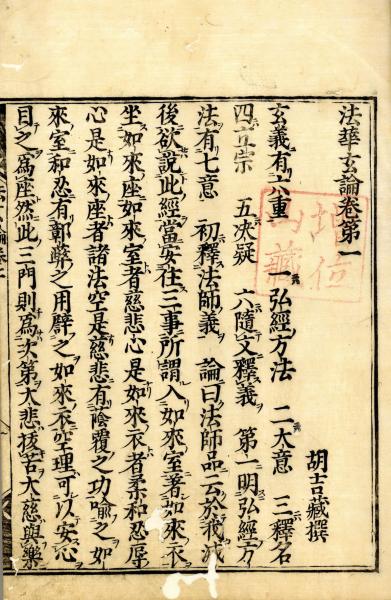 法華玄論卷第一
胡吉藏撰
玄義有六重　一弘經方法　二大意　三釋名
四立宗　五決疑　六隨文釋義　第一明弘經方
法有七意　初釋法師義　論曰法師品云於我滅
後欲說此經當安住三事所謂入如來室著如來衣
坐如來座如來室者慈悲心是如來衣者柔和忍辱
心是如來座者諸法空是慈悲有蔭覆之功喻之如
來室和忍有鄣弊之用譬之如來衣空理可以安心
目之為座然此三門則為次第大悲拔苦大慈與樂